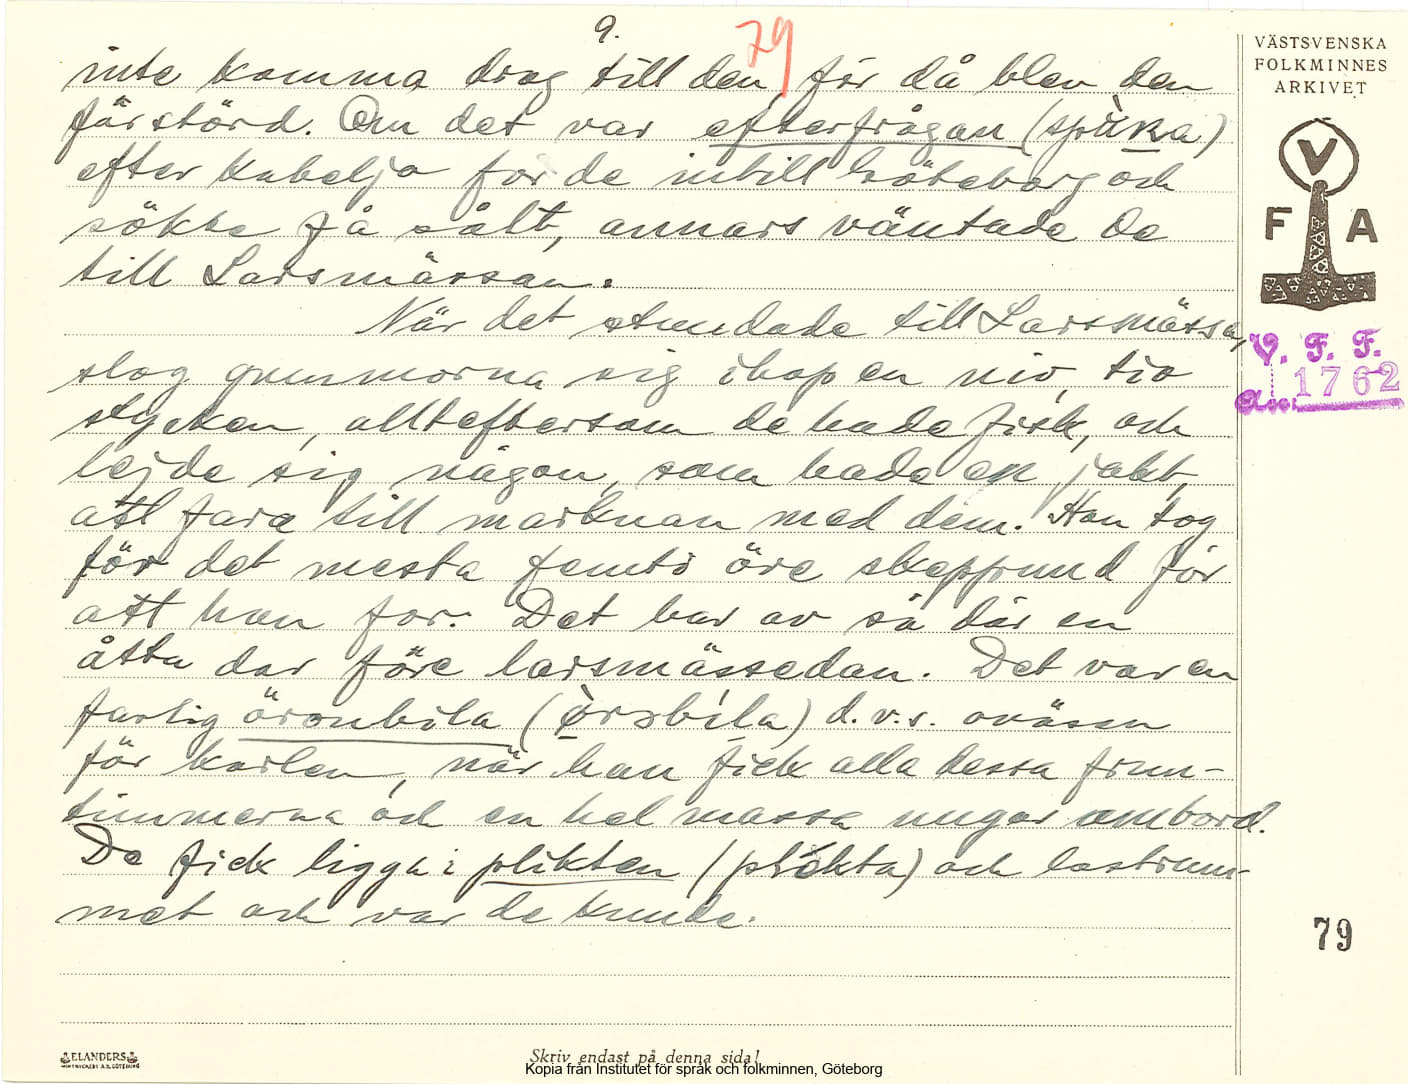 9.
79
inte komma drag till den, för då blev den
förstörd. Om det var efterfrågan (spùka)
efter kabeljo for de intill Göteborg och
sökte få sålt, annars väntade de
till Larsmässan.
När det stundade till Larsmässa,
slog gummorna sig ihop en nio, tio
stycken, allteftersom de hade fisk, och
lejde sig någon, som hade en jakt,
att fara till marknan med dem. Han tog
för det mesta femti öre skeppund för
att han for. Det bar av så där en
åtta dar före larsmässedan. Det var en
farlig öronbila (òrxbíla) d.v.s. oväsen
för karlen, när han fick alla dessa frun-
timmerna och en hel massa ungar ombord.
De fick ligga i plikten (plökta) och lastrum-
met och var de kunde.
VÄSTSVENSKA
FOLKMINNES
ARKIVET
V
F A
V. F. F.
1762
79
ELANDERS
Skriv endast på denna sida!
Kopia från Institutet för språk och folkminnen, Göteborg